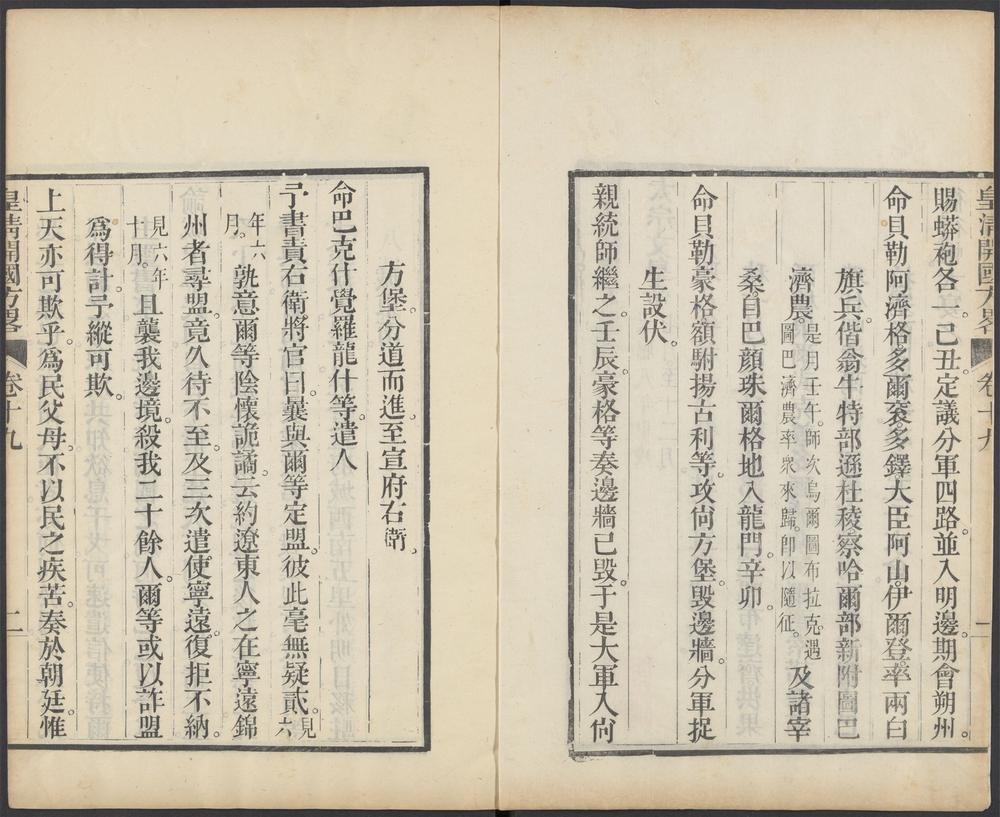 皇清開國方畧 卷十九 一
賜蟒袍各一。己丑定議分軍四路。並入明邊。期會朔州。
命貝勒阿濟格。多爾袞。多鐸。大臣阿山。伊爾登。率兩白
旗兵。偕翁牛特部遜杜稜察哈爾部新附圖巴
濟農。是月壬午。師次烏爾圖布拉克。遇圖巴濟農率衆來歸。卽以隨征。及諸宰
桑自巴顏珠爾格地入龍門。辛卯。
命貝勒豪格額駙揚古利等。攻尙方堡。毀邊牆。分軍捉
生設伏。
親統師繼之。壬辰。豪格等奏邊牆已毀。于是大軍入尙
方堡。分道而進。至宣府右衛。
命巴克什覺羅龍什等。遣人
予書責右衛將官曰。曩與爾等定盟。彼此毫無疑貳。見六
年六月。孰意爾等陰懷詭譎。云約遼東人之在寧遠錦
州者尋盟。竟久待不至。及三次遣使寧遠。復拒不納。
見六年十月。且襲我邊境。殺我二十餘人。爾等或以詐盟
爲得計。予縱可欺。
上天亦可欺乎。爲民父母。不以民之疾苦。奏於朝廷。惟
皇清開國方畧 卷十九 二